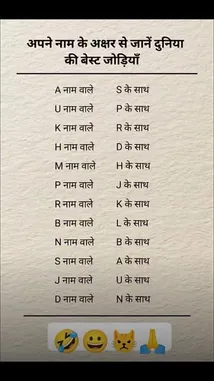 अपने नाम के अक्षर से जानें दुनिया
की बेस्ट जोड़ियाँ
A नाम वाले S के साथ
U नाम वाले P के साथ
K नाम वाले R के साथ
H नाम वाले D के साथ
M नाम वाले H के साथ
P नाम वाले J के साथ
R नाम वाले K के साथ
B नाम वाले L के साथ
N नाम वाले B के साथ
S नाम वाले A के साथ
J नाम वाले U के साथ
D नाम वाले N के साथ